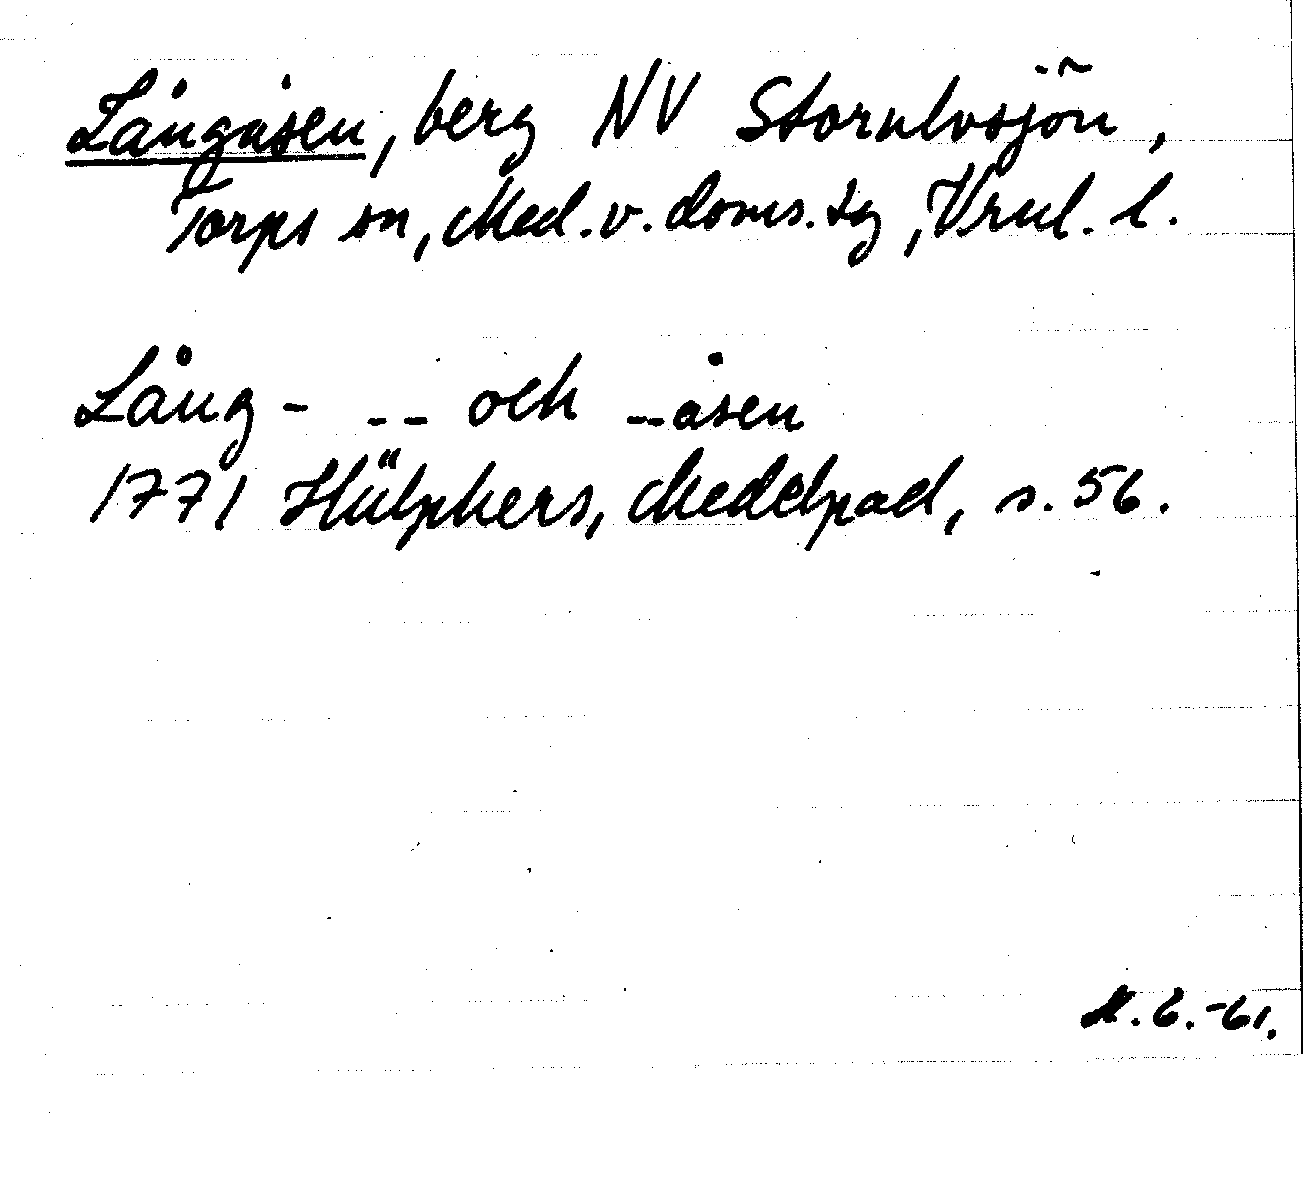 Långåsen, berg NV Storulvsjön,
Torps sn, Med. v. doms. tg, Vrnl. l.
Lång- -- och --åsen
1771 Hülphers, Medelpad, s. 56.
M. B. -61.